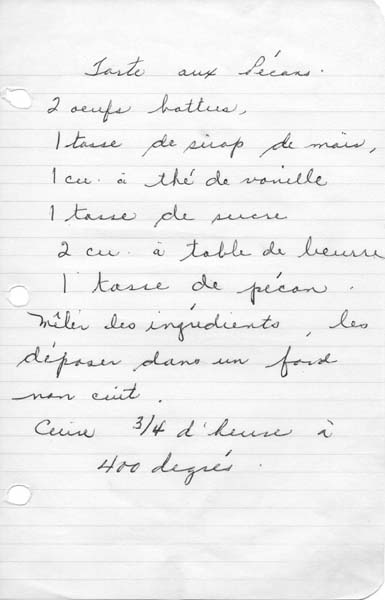 Tarte aux Pécans.
2 oeufs battus,
1 tasse de sirop de maïs,
1 cu. à thé de vanille
1 tasse de sucre
2 cu. à table de beurre
1 tasse de pécan.
Mêler les ingrédients, les
déposer dans un fond
non cuit.
Cuire 3/4 d'heure à
400 degrés.